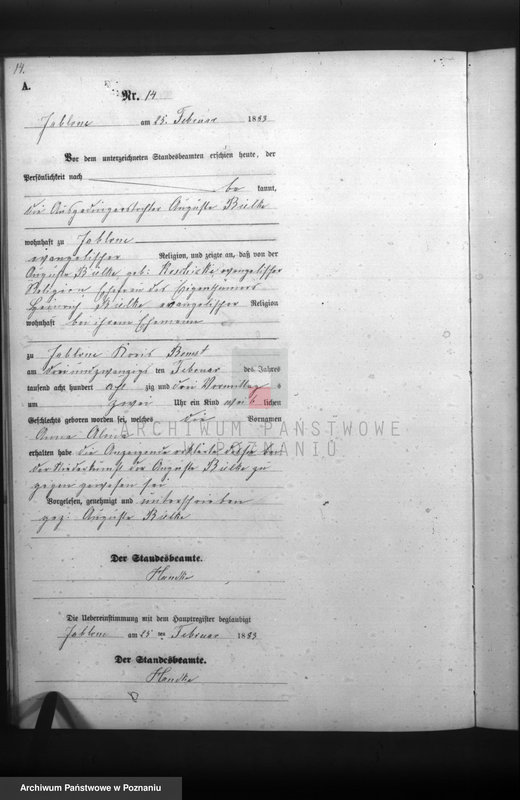 14.
A.
Nr. 14
Jablone am 25. Februar 1883
Vor dem unterzeichneten Standesbeamten erschien heute, der
Persönlichkeit nach
be kannt,
die Ausgedingerstochter Auguste Bielke
wohnhaft zu Jablone
evangelischer Religion, und zeigte an, daß von der
Auguste Bielke geb: evangelischer
Religion Ehefrau des Eigenthümers
Heinrich Bielke evangelischer Religion
wohnhaft bei ihrem Ehemanne
zu Jablone Kreis Bomst
am dreiundzwanzigs ten Februar des Jahres
tausend acht hundert acht zig und drei Vormittag s
um zwei Uhr ein Kind weib lichen
Geschlechts geboren worden sei, welches die Vornamen
Anna
erhalten habe die Anzeigende erklärte daß sie bei
der Niederkunft der Auguste Bielke zu
gegen gewesen sei
Vorgelesen, genehmigt und unterschrieben
gez: Auguste Bielke
Der Standesbeamte.
Handke
Die Uebereinstimmung mit dem Hauptregister beglaubigt
Jablone am 25 ten Februar 1883
Der Standesbeamte.
Handke
ARCHIWUM PAŃSTWOWE
W POZNANIU
Archiwum Państwowe w Poznaniu